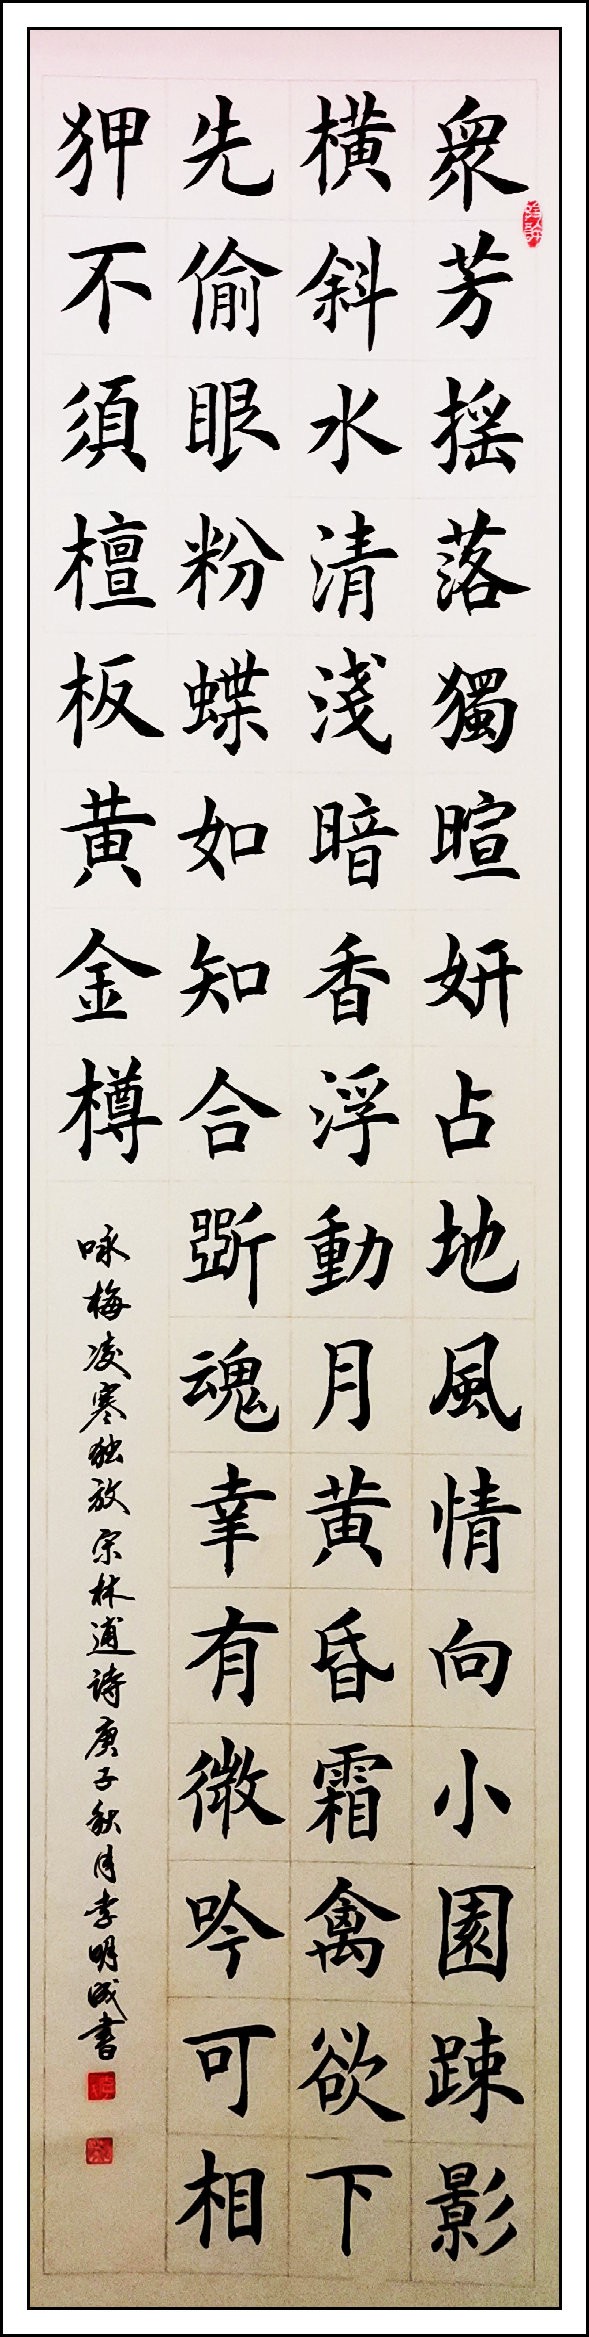 衆芳揺落獨暄妍占地風情向小園踈影
橫斜水清淺暗香浮動月黄昏霜禽欲下
先偷眼粉蝶如知合斷魂幸有微吟可相
狎不須檀板黄金樽
咏梅凌寒独放宗林逋詩庚子秋月李明成書